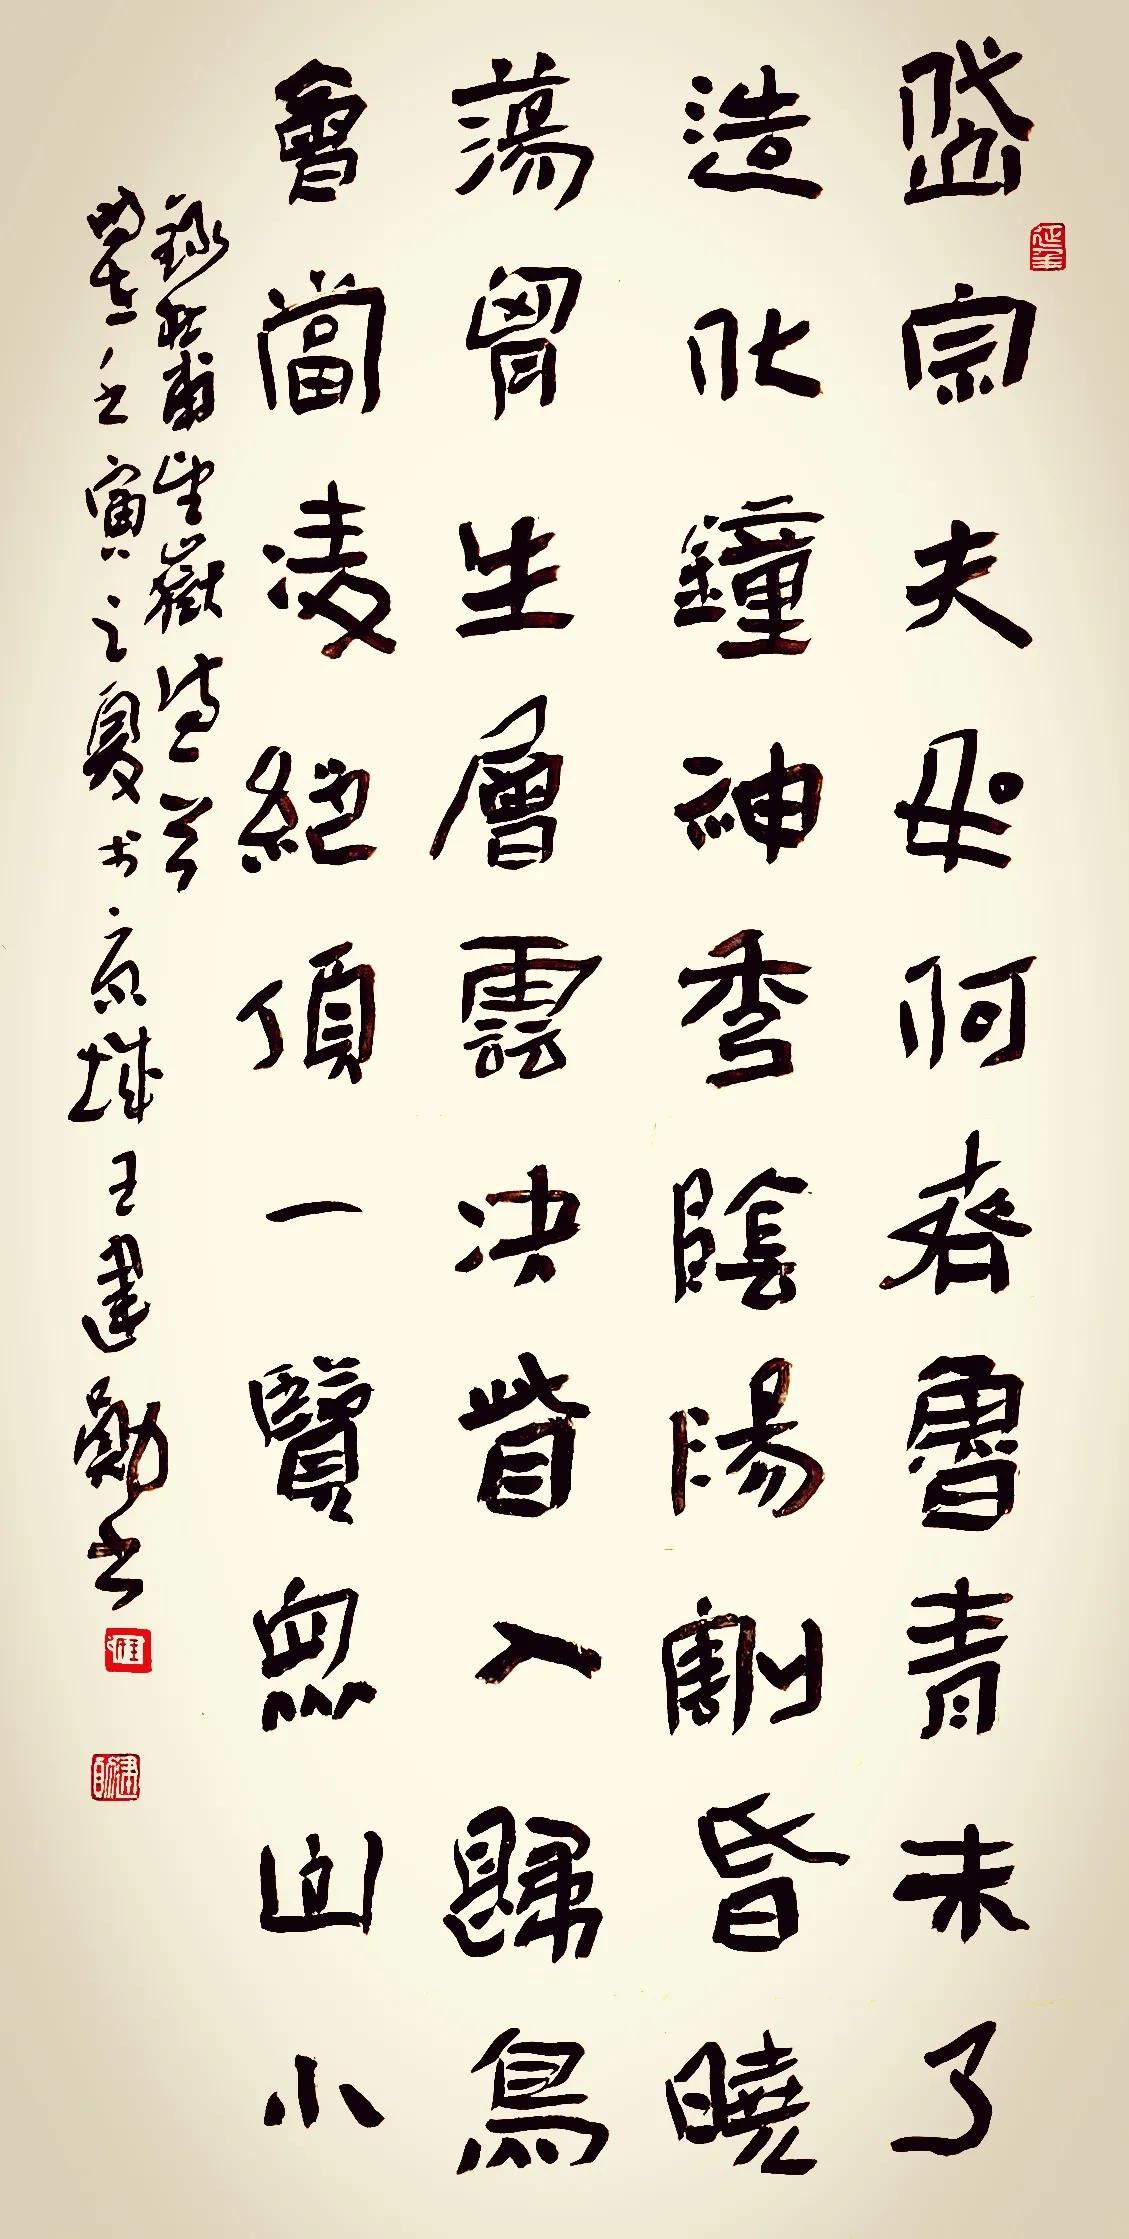 岱宗夫如何齊魯青未了
造化鐘神秀陰陽割昏曉
蕩胷生層雲决眥入歸鳥
會當凌絕頂一覽眾山小
錄杜甫望嶽詩一首
壬寅之夏於京城王建勛书